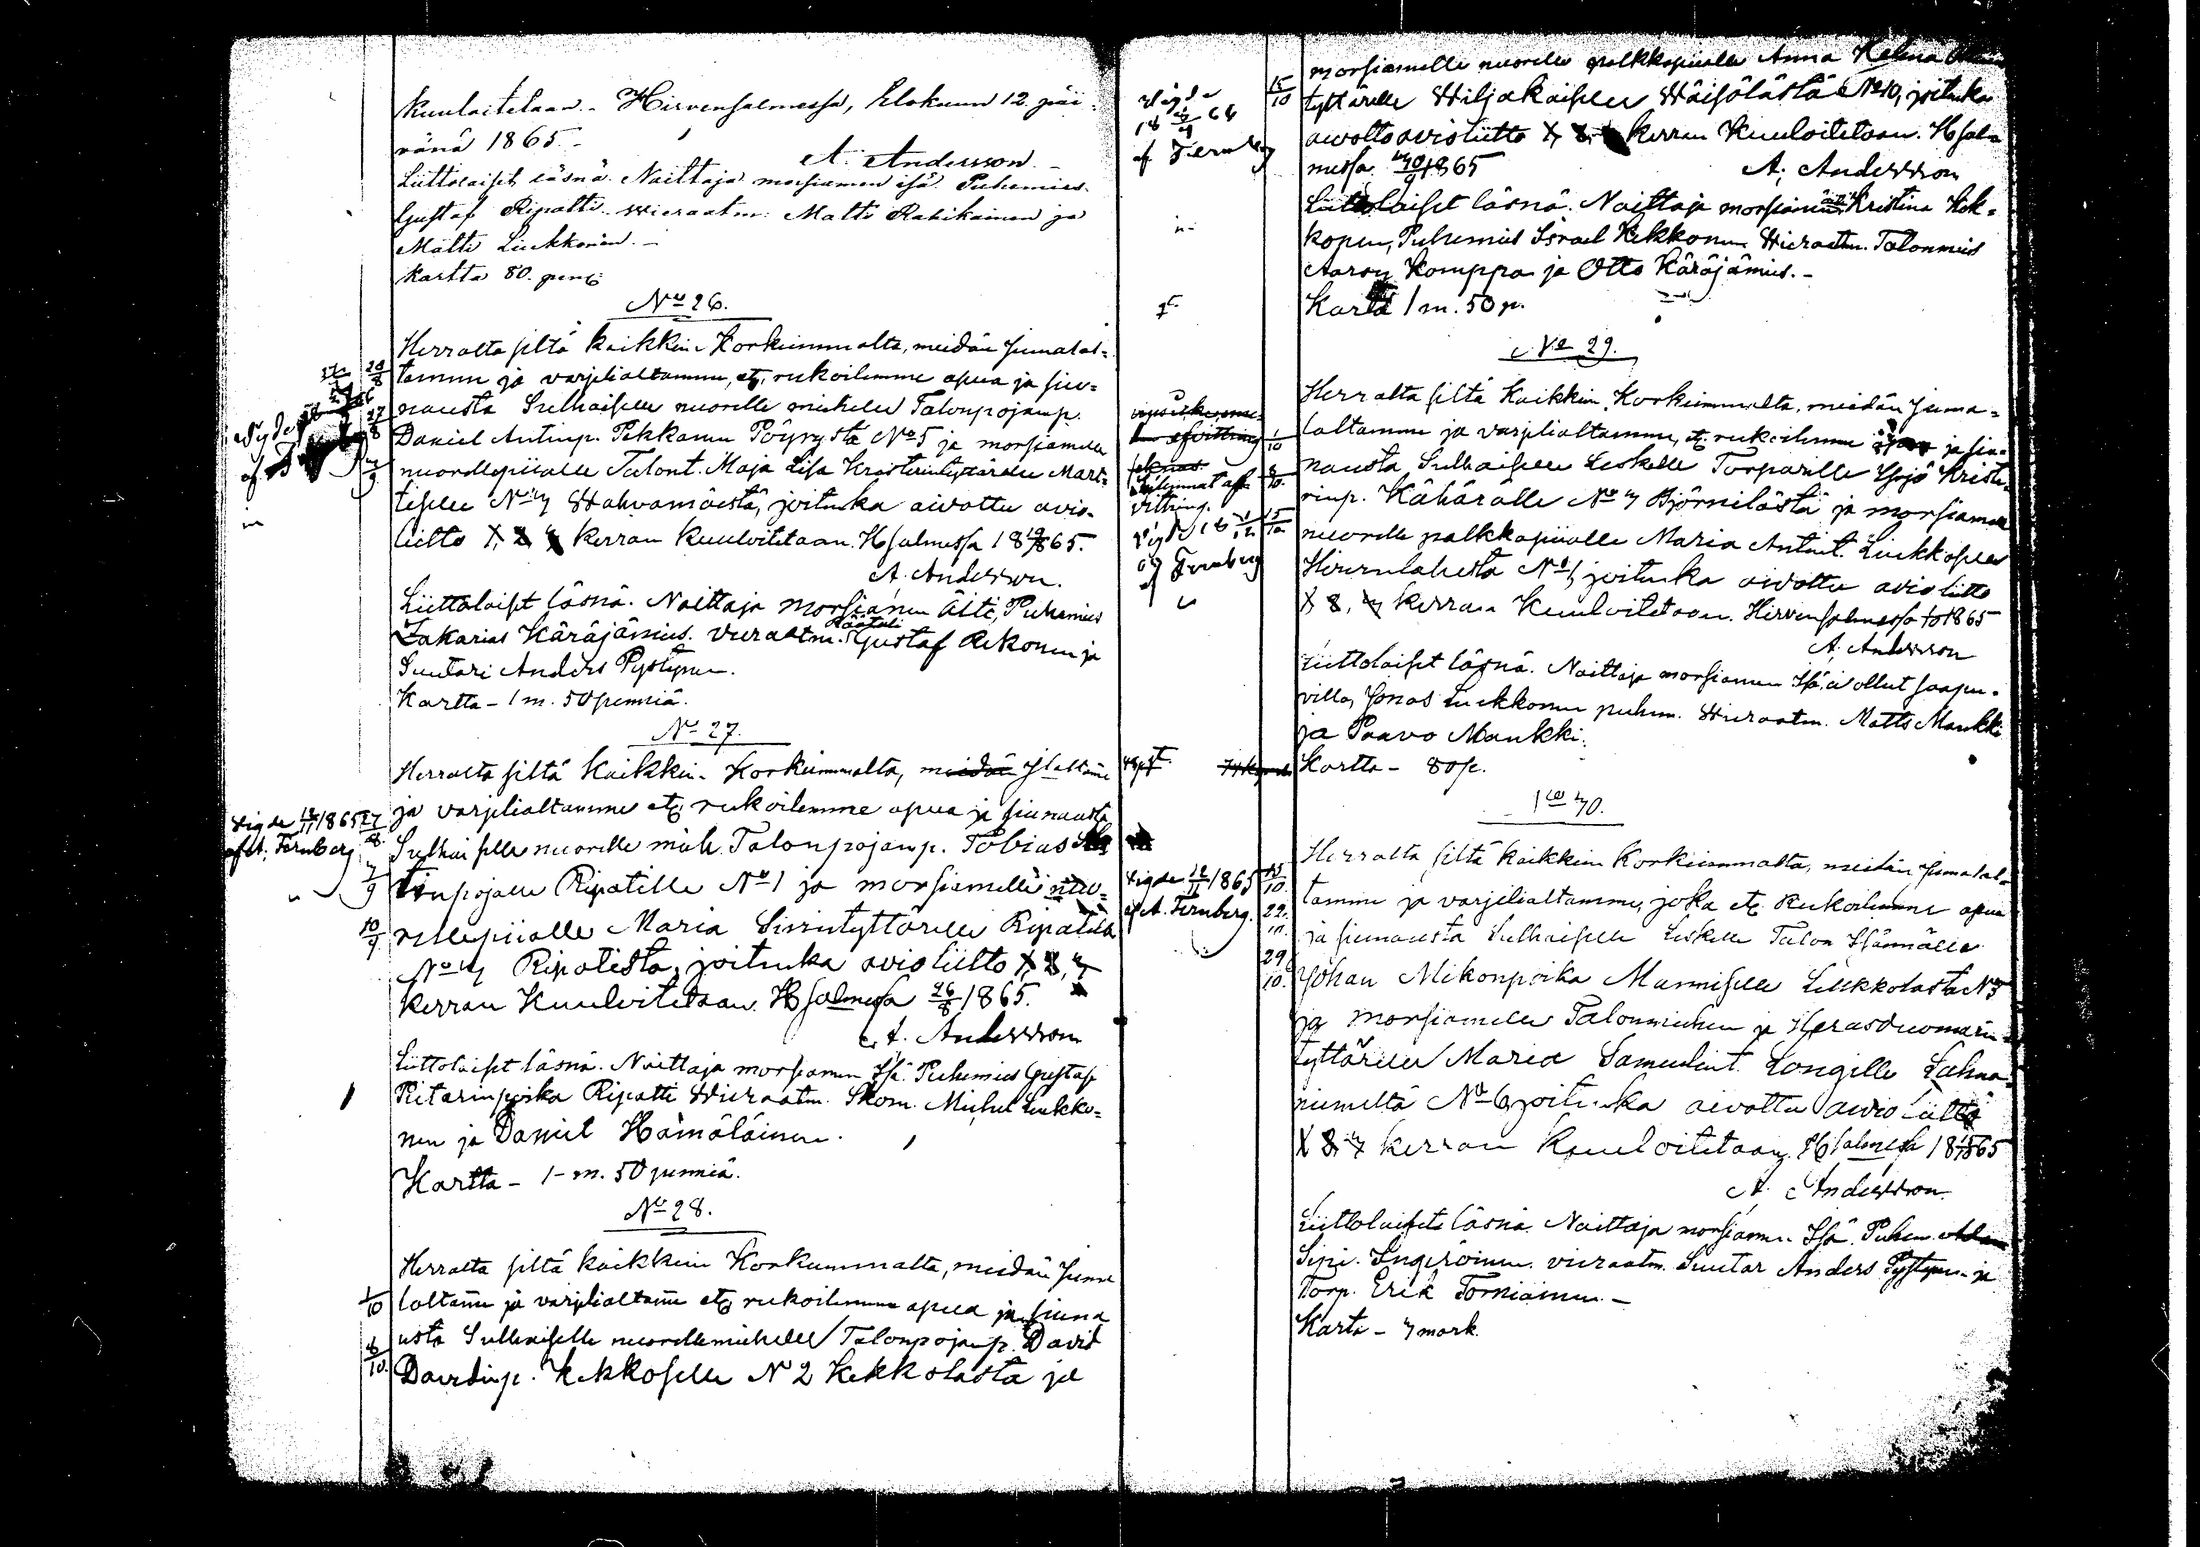 kuuloitetaan. Hirvensalmessa, Elokuun 12. päi-
vänä 1865.
A. Andersson.
Liittolaiset läsnä. Naittaja morsiamen isä. Puhemies
Gustaf Ripatti. Wieraatm: Matti Rahikainen ja
Matti Liukkonen.
Kartta 80. pen:
No 26.
Herralta siltä kaikkein Korkeimmalta, meidän Jumalal-
tamme ja varjelialtamme, etc. rukoilemme apua ja siu-
nausta Sulhaiselle nuorelle miehelle Talonpojanp.
Daniel Antinp. Pekkanen Pöyrystä No 5 ja morsiamelle
nuorellepiialle Talont. Maja Lisa Kristerintyttärelle Mart-
tiselle No 4 Wahvamäestä, joitenka aivottu avio-
liitto 1, 2, 3 kerran kuuloitetaan. HSalmessa 18 19/8 65.
A. Andersson.
Liittolaiset läsnä. Naittaja morsiamen äiti, Puhemies
Zakarias Käräjämies. vieraatm. Räätäli Gustaf Rekonen ja
Suutari Anders Pystynen.
Kartta - 1 m. 50 penniä.
No 27.
Herralta siltä Kaikkein Korkeimmalta, meidän Jlaltame
ja varjelialtamme etc. rukoilemme apua ja siunausta
Sulhaiselle nuorelle mieh. Talonpojanp. Tobias
tinpojalle Ripatille No 1 ja morsiamelle nuo-
rellepiialle Maria Sirrintyttärelle Ripatille
No 4 Ripatista, joitenka avioliitto 1, 2, 3
kerran Kuuloitetaan. HSalmessa 26/8 1865.
A. Andersson
Liittolaiset läsnä. Naittaja morsiamen Isä. Puhemies Gustaf
Pitarinpoika Ripatti Wieraatm. Skom. Michel Liukko-
nen ja Daniel Hämäläinen.
Kartta - 1 m. 50 penniä.
No 28.
Herralta siltä kaikkein Korkeimmalta, meidän Juma
laltame ja varjelialtame etc. rukoilemme apua ja siuna
usta Sulhaiselle nuorellemiehelle Talonpojanp. David
Davidinp. Kekkoselle N 2 Kekkolasta ja
Vigde 12/11 1865
af A. Fernberg
morsiamelle nuorelle palkkapiialle Anna Helena
tyttärelle Hiljakaiselle Wäisälästä No 10, joitenka
aivottu avioliitto 1, 2, kerran Kuuloitetaan. HSal-
messa 1865
A. Andersson
Liittolaiset läsnä. Naittaja morsiamen äiti Kristina Kek-
konen, Puhemies Israel Kekkonen Wieraatm. Talonmies
Aaron Komppa ja Otto Käräjämies.
Karta 1 m. 50 p.
No 29.
Herralta siltä Kaikkein Korkeimmalta, meidän Juma-
laltamme ja varjelialtamme, etc. rukoilemme apua ja siu-
nausta Sulhaiselle Leskelle Torparille Yrjö Kriste-
rinp. Kähärälle No 4 Björnilästä ja morsiamelle
nuorelle palkkapiialle Maria Antint. Liukkoselle
Hirvenlahesta No 1, joitenka aivottu avioliitto
1, 2, 3 kerran Kuuloitetaan. Hirvensalmessa 1865
A. Andersson
Liittolaiset läsnä. Naittaja morsiamen Isä, ei ollut saapu-
villa, Jonas Liukkonen puhem. Wieraatm. Matts Maukki
ja Paavo Maukki.
Kartta - 80 p.
40.
Herralta siltä kaikkein Korkeimmalta, meidän Jumalal-
tamme ja varjelialtamme, joka etc. Rukoilemme apua
ja siunausta Sulhaiselle Leskelle Talon Isännälle
Johan Mikonpoika Manniselle Liukkolasta No 5
ja morsiamelle Talonmiehen ja Herasduomarin
tyttärelle Maria Samuelint. Longille Lahna-
niemeltä No 6, joitenka aivottu avioliitto
1, 2, 3 kerran kuuloitetaan. HSalmessa 1865
A. Andersson
Liittolaiset läsnä. Naittaja morsiamen Isä. Puhem.
Sipi. Ingeröinen. vieraatm. Suutar Anders Pystynen ja
Torp. Erik Torniainen.
Karta - 4 mark.
Vigde 12/11 1865
af A. Fernberg.